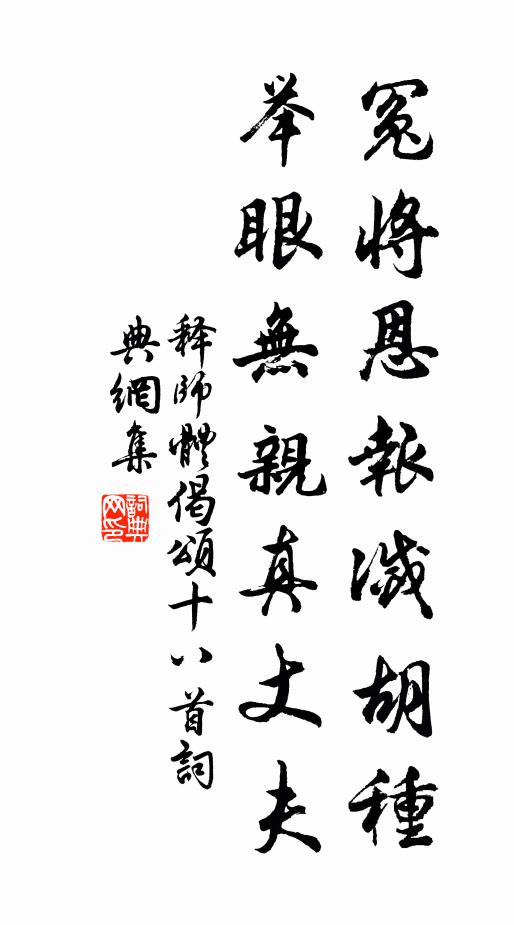 冤將恩報滅胡種
举眼無親真丈夫
释師體偈頌十八首詞
典網集
詞典網印